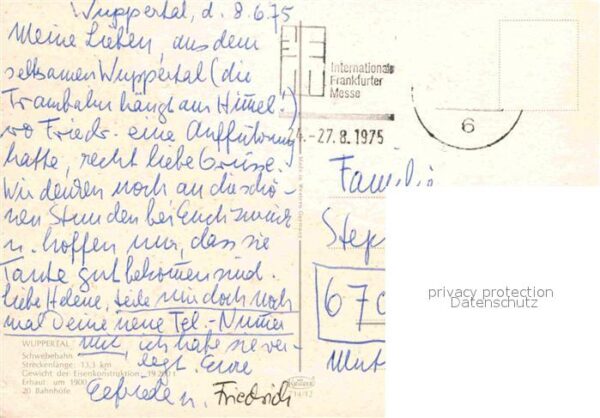 Wuppertal, d. 8.6.75
Meine Lieben, aus dem
seltsamen Wuppertal (die
Trambahn hängt am Himmel!)
wo Friedr. eine Aufführung
hatte, recht liebe Grüsse.
Wir denken noch an die schö-
nen Stunden bei Euch zurück
u. hoffen nur, dass sie
Tante gut bekommen sind.
liebe Helene, teile mir doch noch
mal Deine neue Tel.-Nummer
mit, ich habe sie ver-
legt. Eure
Elfriede u. Friedrich
WUPPERTAL
Schwebebahn
Streckenlänge: 13,3 km
Gewicht der Eisenkonstruktion: 19 200 t
Erbaut um 1900
20 Bahnhöfe
Internationale
Frankfurter
Messe
24.-27.8.1975
6
Familie
Step
670
Mut
privacy protection
Datenschutz